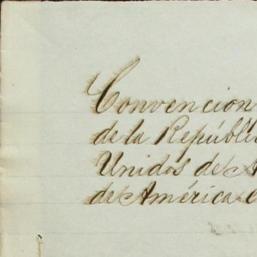 Convencion
de la Repúbli
Unidos de A
de América